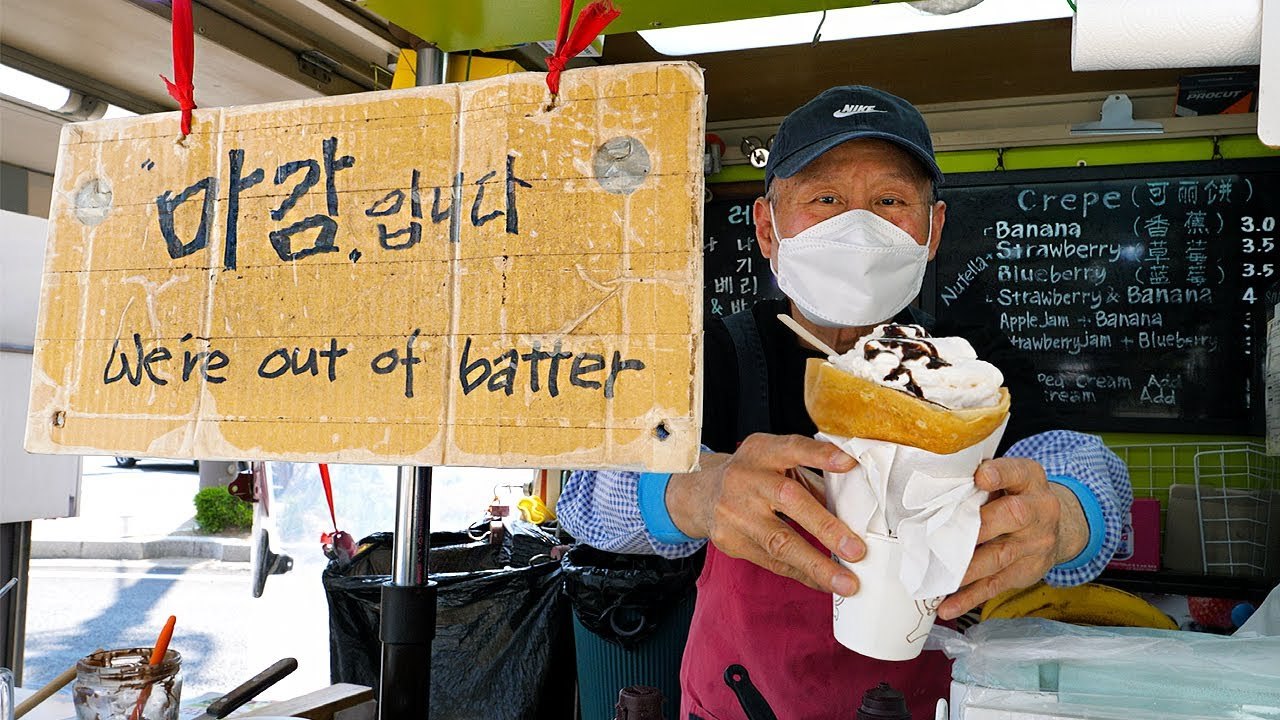 "마감"입니다
We're out of batter
NIKE
PROCUT
Crepe (可丽饼)
Banana (香蕉) 3.0
Strawberry (草莓) 3.5
Blueberry (蓝莓) 3.5
Nutella
Strawberry & Banana 4
Apple Jam + Banana
Strawberry Jam + Blueberry
Cream Add
Add